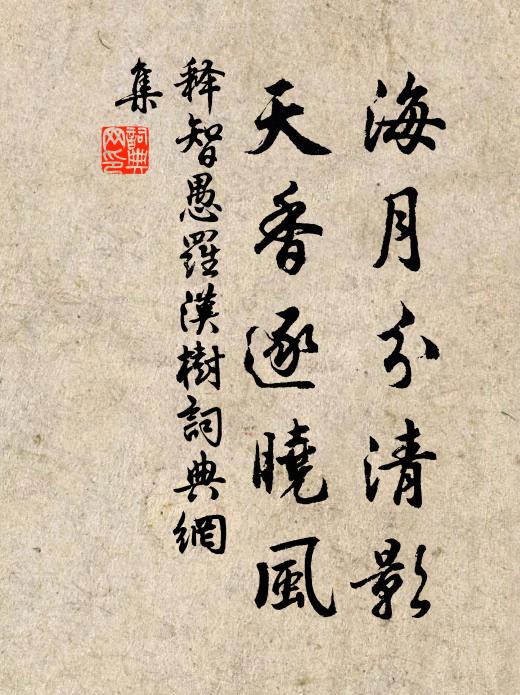 海月分清影
天香逐曉風
释智愚羅漢樹詞典網
集
詞典
网印